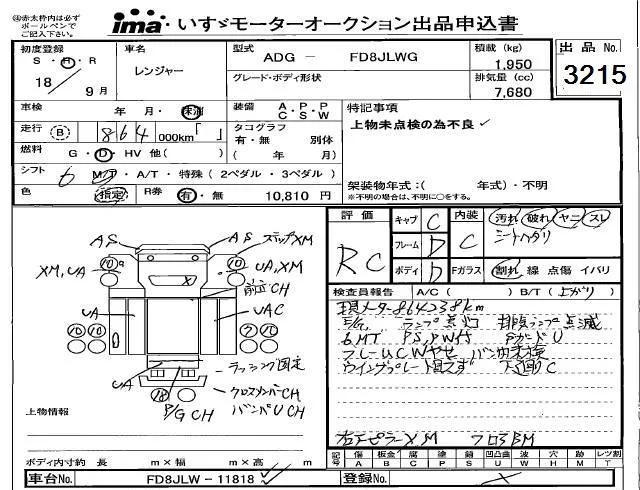 ④赤太枠内は必ず
ボールペンで
ご記入下さい。
ima いすゞモーターオークション出品申込書
初度登録
S・H・R
18 9月
車名
レンジャー
型式 ADG - FD8JLWG
グレード・ボディ形状
積載 (kg)
1,950
排気量 (cc)
7,680
出品 No.
3215
車検 年 月・抹消
装備 A・P・P
C・S・W
特記事項
上物未点検の為不良 ✓
走行 (B) 864 000km「 」
タコグラフ
有・無 別体
( 年 月)
燃料 G・D・HV 他( )
シフト 6 MT・A/T・特殊 ( 2ペダル・3ペダル )
色 指定 R券 有・無 10,810 円
架装物年式:( 年式)・不明
※不明の場合は、不明に○をする。
評価 RC
キャブ C
フレーム D
ボディ D
内装 C
汚れ 破れ ヤニ スレ
シートヘタリ
Fガラス 割れ 線 点傷 イバリ
検査員報告 A/C ( ) B/T (上がり)
現メーター864238km
E/G, ランプ点灯 排気ランプ点滅
6MT PS,PW付
フレームUCWヤセ
下廻りC
AS AS ステップXM
XM,UA UA,XM
前立CH
UA UAC
ラッシング固定
UA クロスメンバーCH
P/G CH バンパU CH
上物情報
ボディ内寸約 長 m×幅 m×高 m
記号 傷 A 板金 B 腐 C 塗 P 錆 S 凹凸曲 U 波 W 穴 H 跡 M レツ割 T
車台No. FD8JLW-11818
登録No.